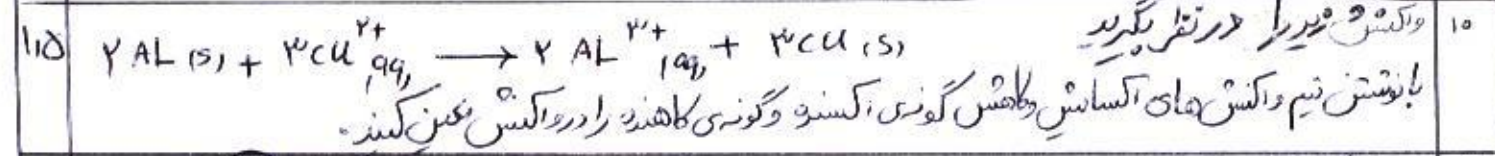 ۱۰ واکنش زیر را در نظر بگیرید
۲ AL (s) + ۳ Cu²⁺ (aq) ⟶ ۲ AL³⁺ (aq) + ۳ Cu (s) ۱,۵
با نوشتن نیم واکنش های اکسایش و کاهش گونه ی اکسنده و گونه ی کاهنده را در واکنش تعیین کنید.